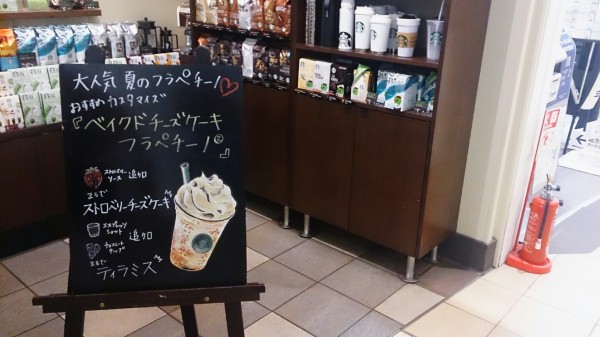 大人気 夏のフラペチーノ
おすすめカスタマイズ
『ベイクドチーズケーキ
フラペチーノ®』
ストロベリー
ソース 追加
まるで
ストロベリーチーズケーキ
エスプレッソ
shot 追加
チョコレート
チップ
まるで
ティラミス